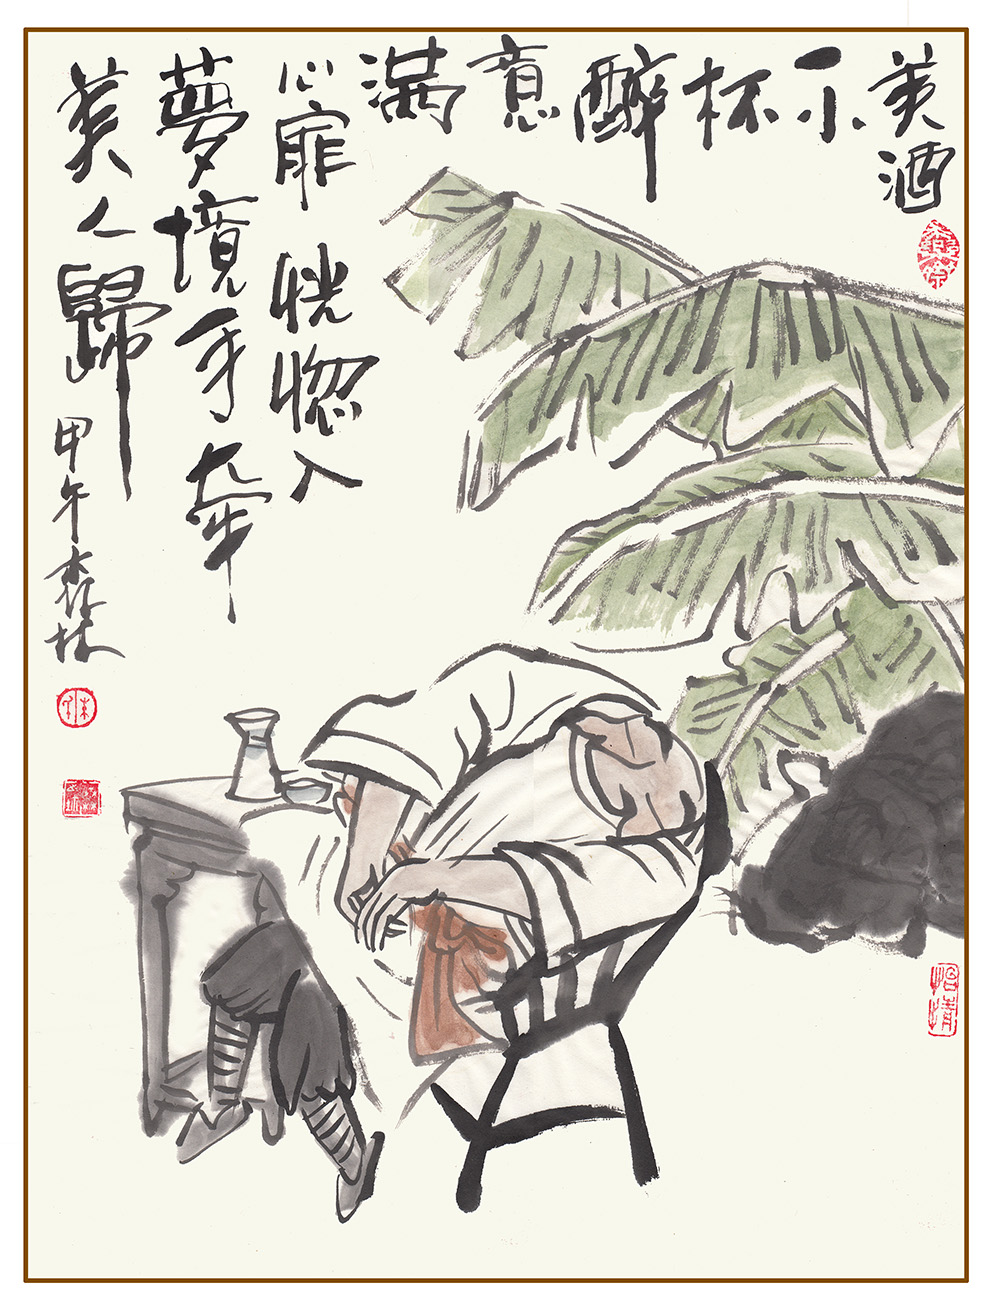 美酒
杯
醉
意
满
心扉 恍惚入
夢境手牵
美人歸
甲午森林
怡情